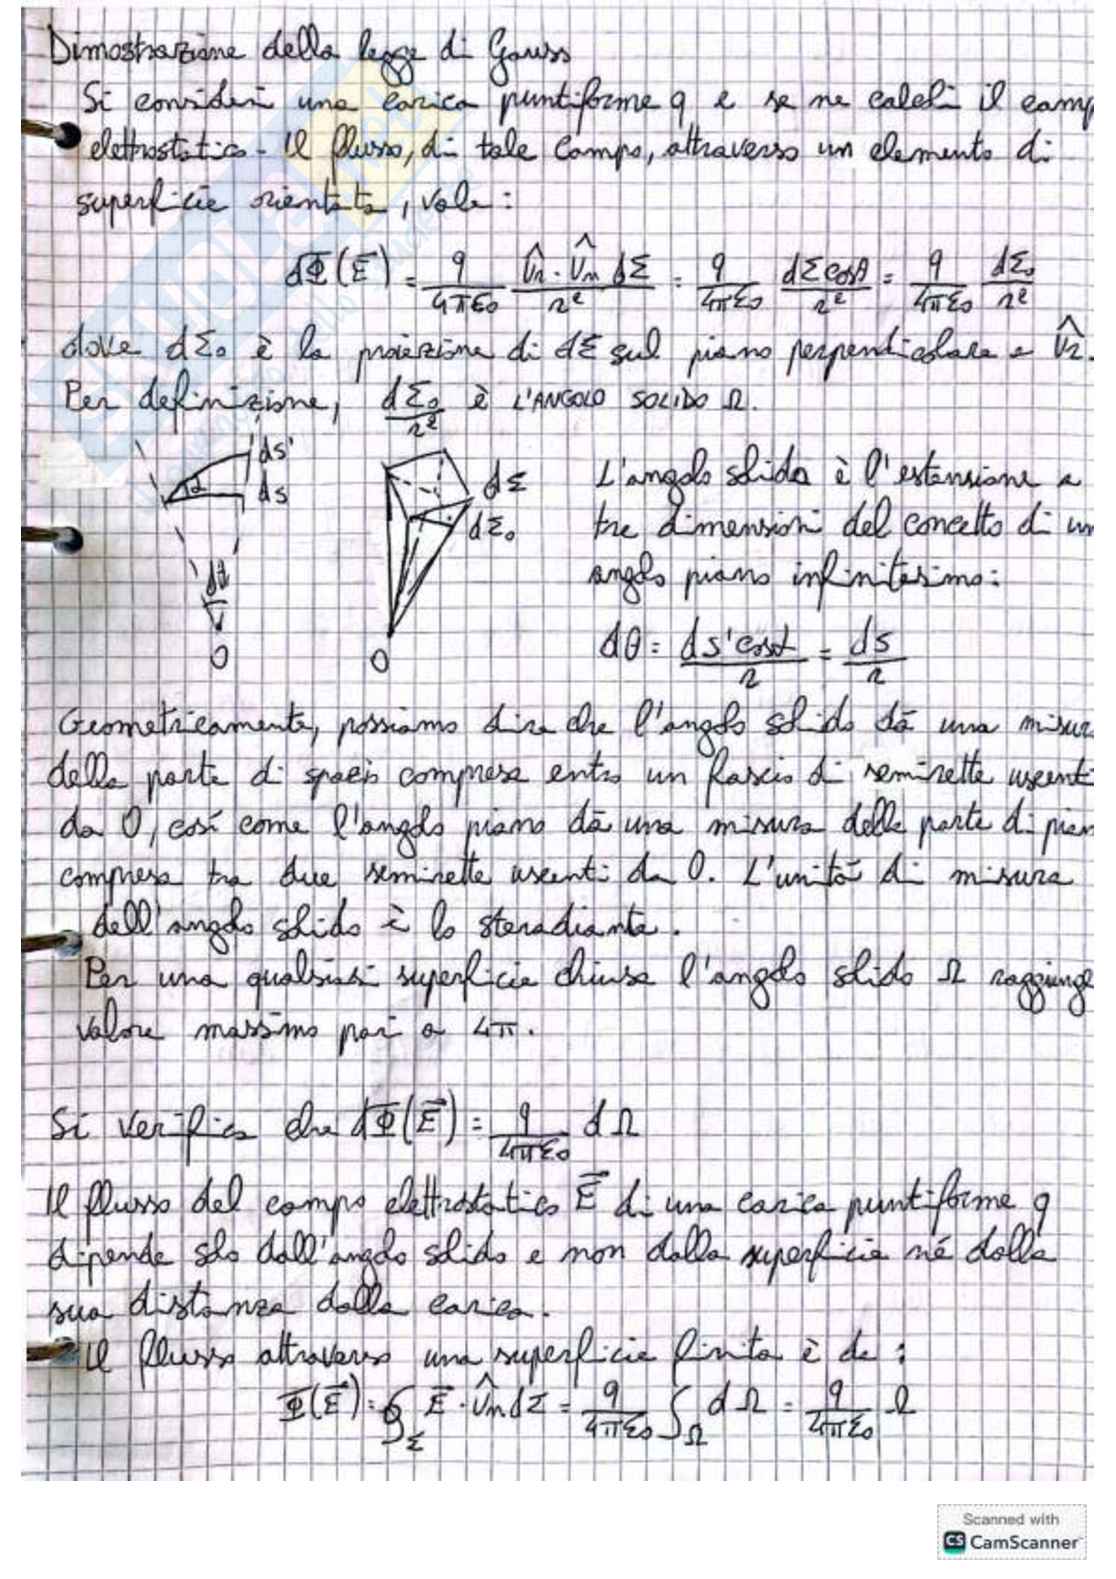 Dimostrazione della legge di Gauss
Si consideri una carica puntiforme q e se ne calcoli il camp
elettrostatico. Il flusso, di tale campo, attraverso un elemento di
superficie orientata, vale:
dΦ(E⃗) = q/4πε₀ Û₂·Ûₙ dΣ/r² = q/4πε₀ dΣ cosθ/r² = q/4πε₀ dΣ₀/r²
dove dΣ₀ è la proiezione di dΣ sul piano perpendicolare a Û₂.
Per definizione, dΣ₀/r² è L'ANGOLO SOLIDO Ω.
ds'
α ds
dθ
O
dΣ
dΣ₀
O
L'angolo solido è l'estensione a
tre dimensioni del concetto di un
angolo piano infinitesimo:
dθ = ds'cosα/r = ds/r
Geometricamente, possiamo dire che l'angolo solido dà una misur
della parte di spazio compresa entro un fascio di semirette uscenti
da O, così come l'angolo piano dà una misura della parte di pian
compresa tra due semirette uscenti da O. L'unità di misura
dell'angolo solido è lo steradiante.
Per una qualsiasi superficie chiusa l'angolo solido Ω raggiunge
valore massimo pari a 4π.
Si verifica che dΦ(E⃗) = q/4πε₀ dΩ
Il flusso del campo elettrostatico E⃗ di una carica puntiforme q
dipende solo dall'angolo solido e non dalla superficie né dalla
sua distanza dalla carica.
Il flusso attraverso una superficie finita è da:
Φ(E⃗) = ∮_Σ E⃗·Ûₙ dΣ = q/4πε₀ ∫_Ω dΩ = q/4πε₀ Ω
Scanned with
CS CamScanner